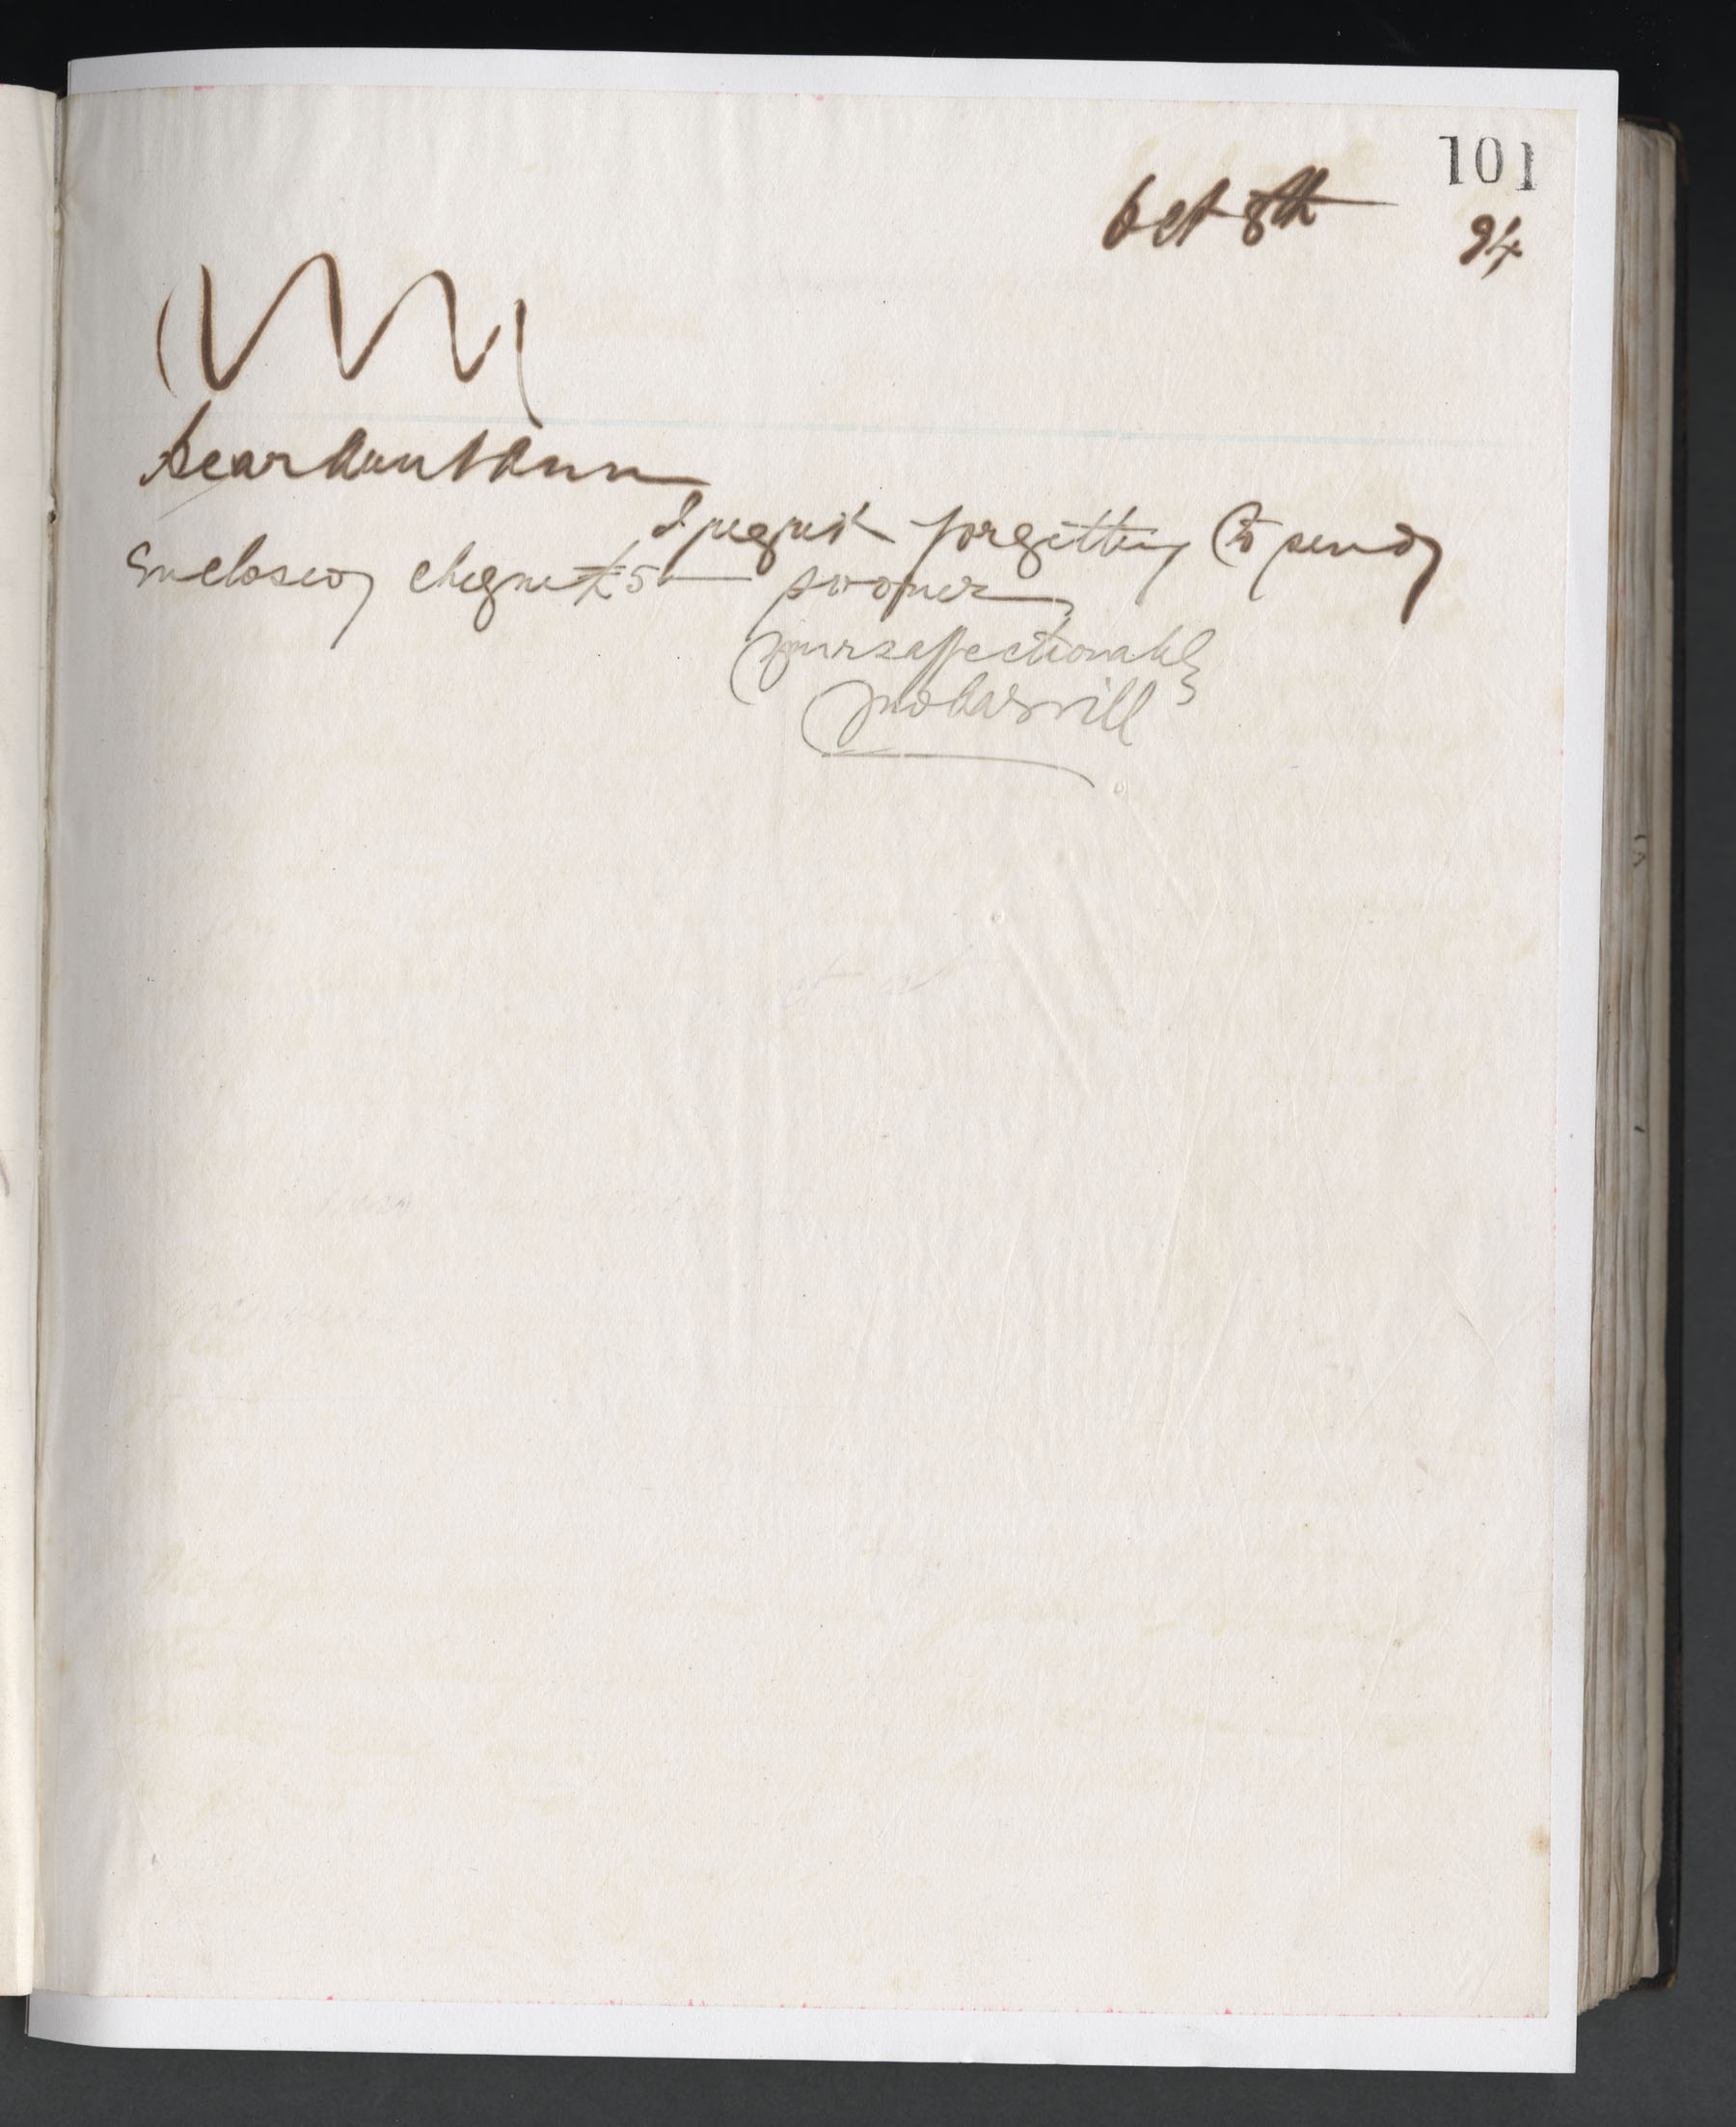 101
Oct 8th 94
Dear Aunt Ann
I regret forgetting to send
Enclosed cheque £5 — sooner
Yours affectionately
Jno Cassill